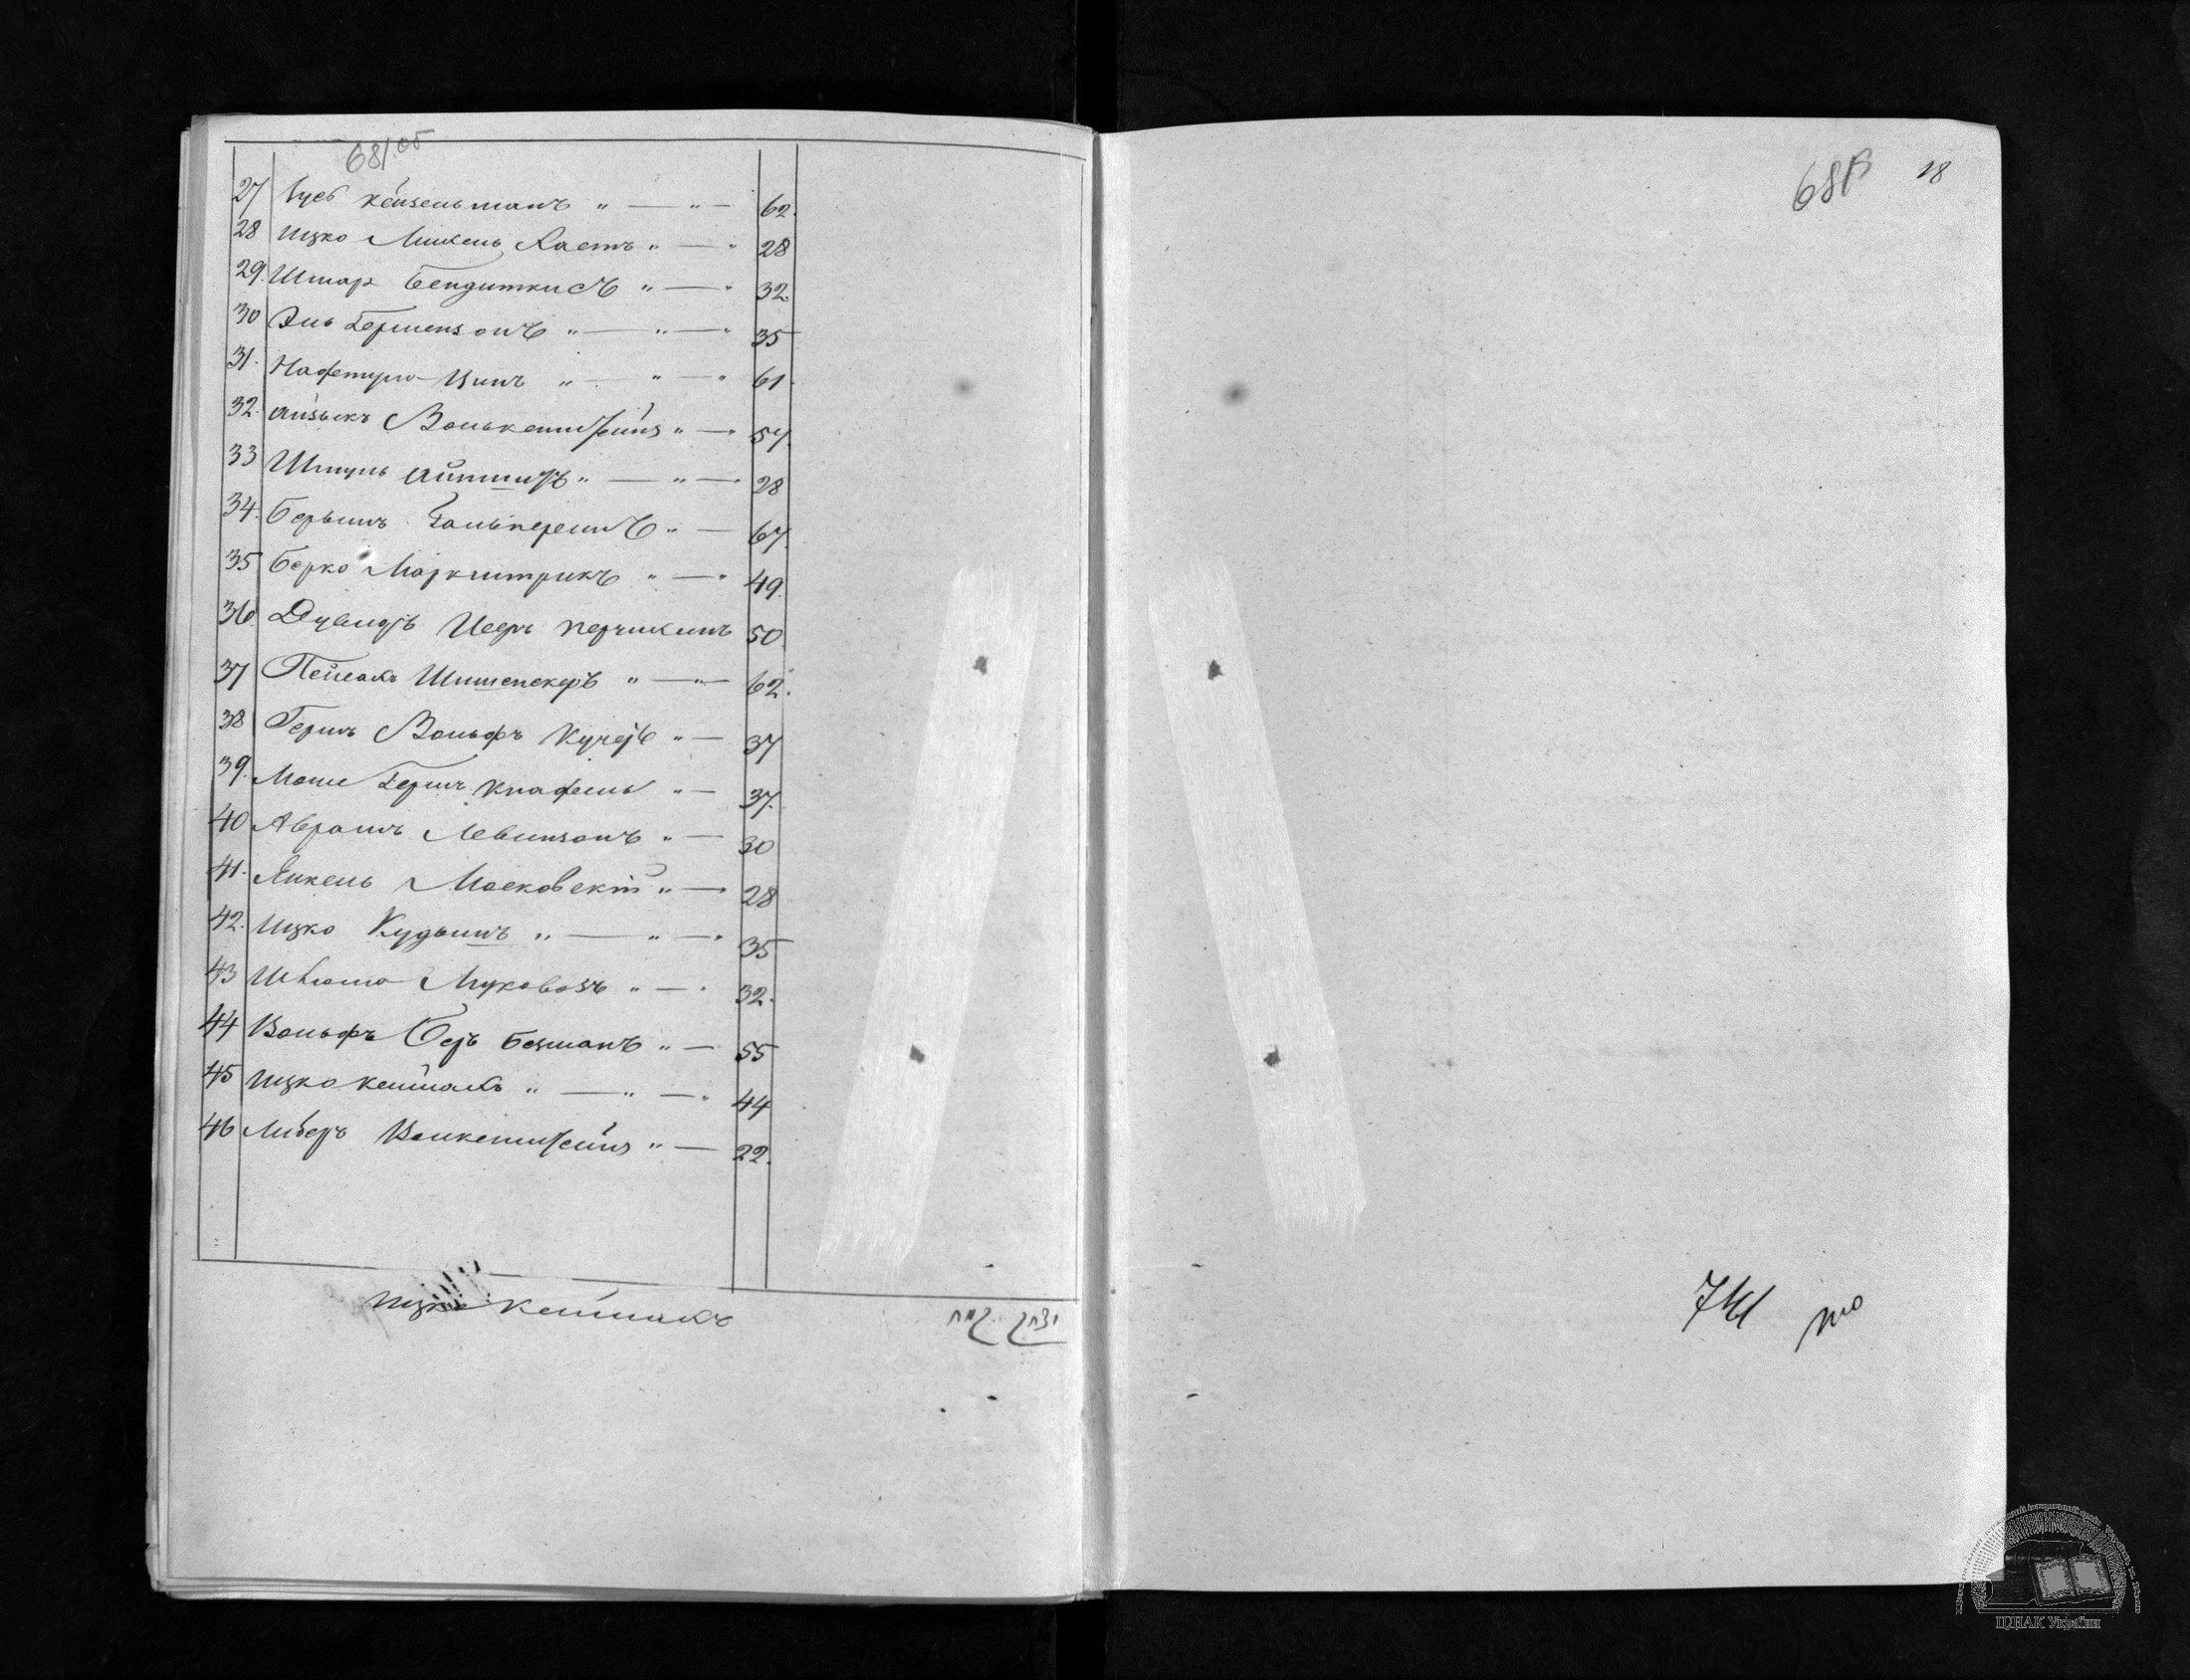 681 об
27 Гусъ Кейзельманъ " — " — 62.
28 Ицко Михель Кастъ " — " 28
29. Шмар Бендиткисъ " — " 32
30 Эль Гершензонъ " — " — " 35
31. Нафтуло Кипъ " — " — " 61.
32. Айзыкъ Волькенштейнъ " — " 57.
33 Шмуль Айпшицъ " — " — 28
34. Берышъ Гальперинъ " — 67.
35 Берко Маркитрикъ " — " 49.
36. Дувидъ Иееръ Перчикинъ 50.
37 Пейсахъ Шишепекеръ " — " — 62.
38 Гершъ Вольфъ Кучеръ " — 37
39. Моше Гершъ Кнафель " — 37.
40 Аврамъ Левинзонъ " — 30
41. Янкель Московскій " — 28
42. Ицко Кудышъ " — " — " 35
43 Шлiома Муковозъ " — " 32.
44 Вольфъ Беръ Бецманъ " — 55
45 Ицко Кейманъ " — " — " 44
46 Либеръ Волкенштейнъ " — 22.
Ицко Кейманъ
68В 18
741
ЦДІАК України